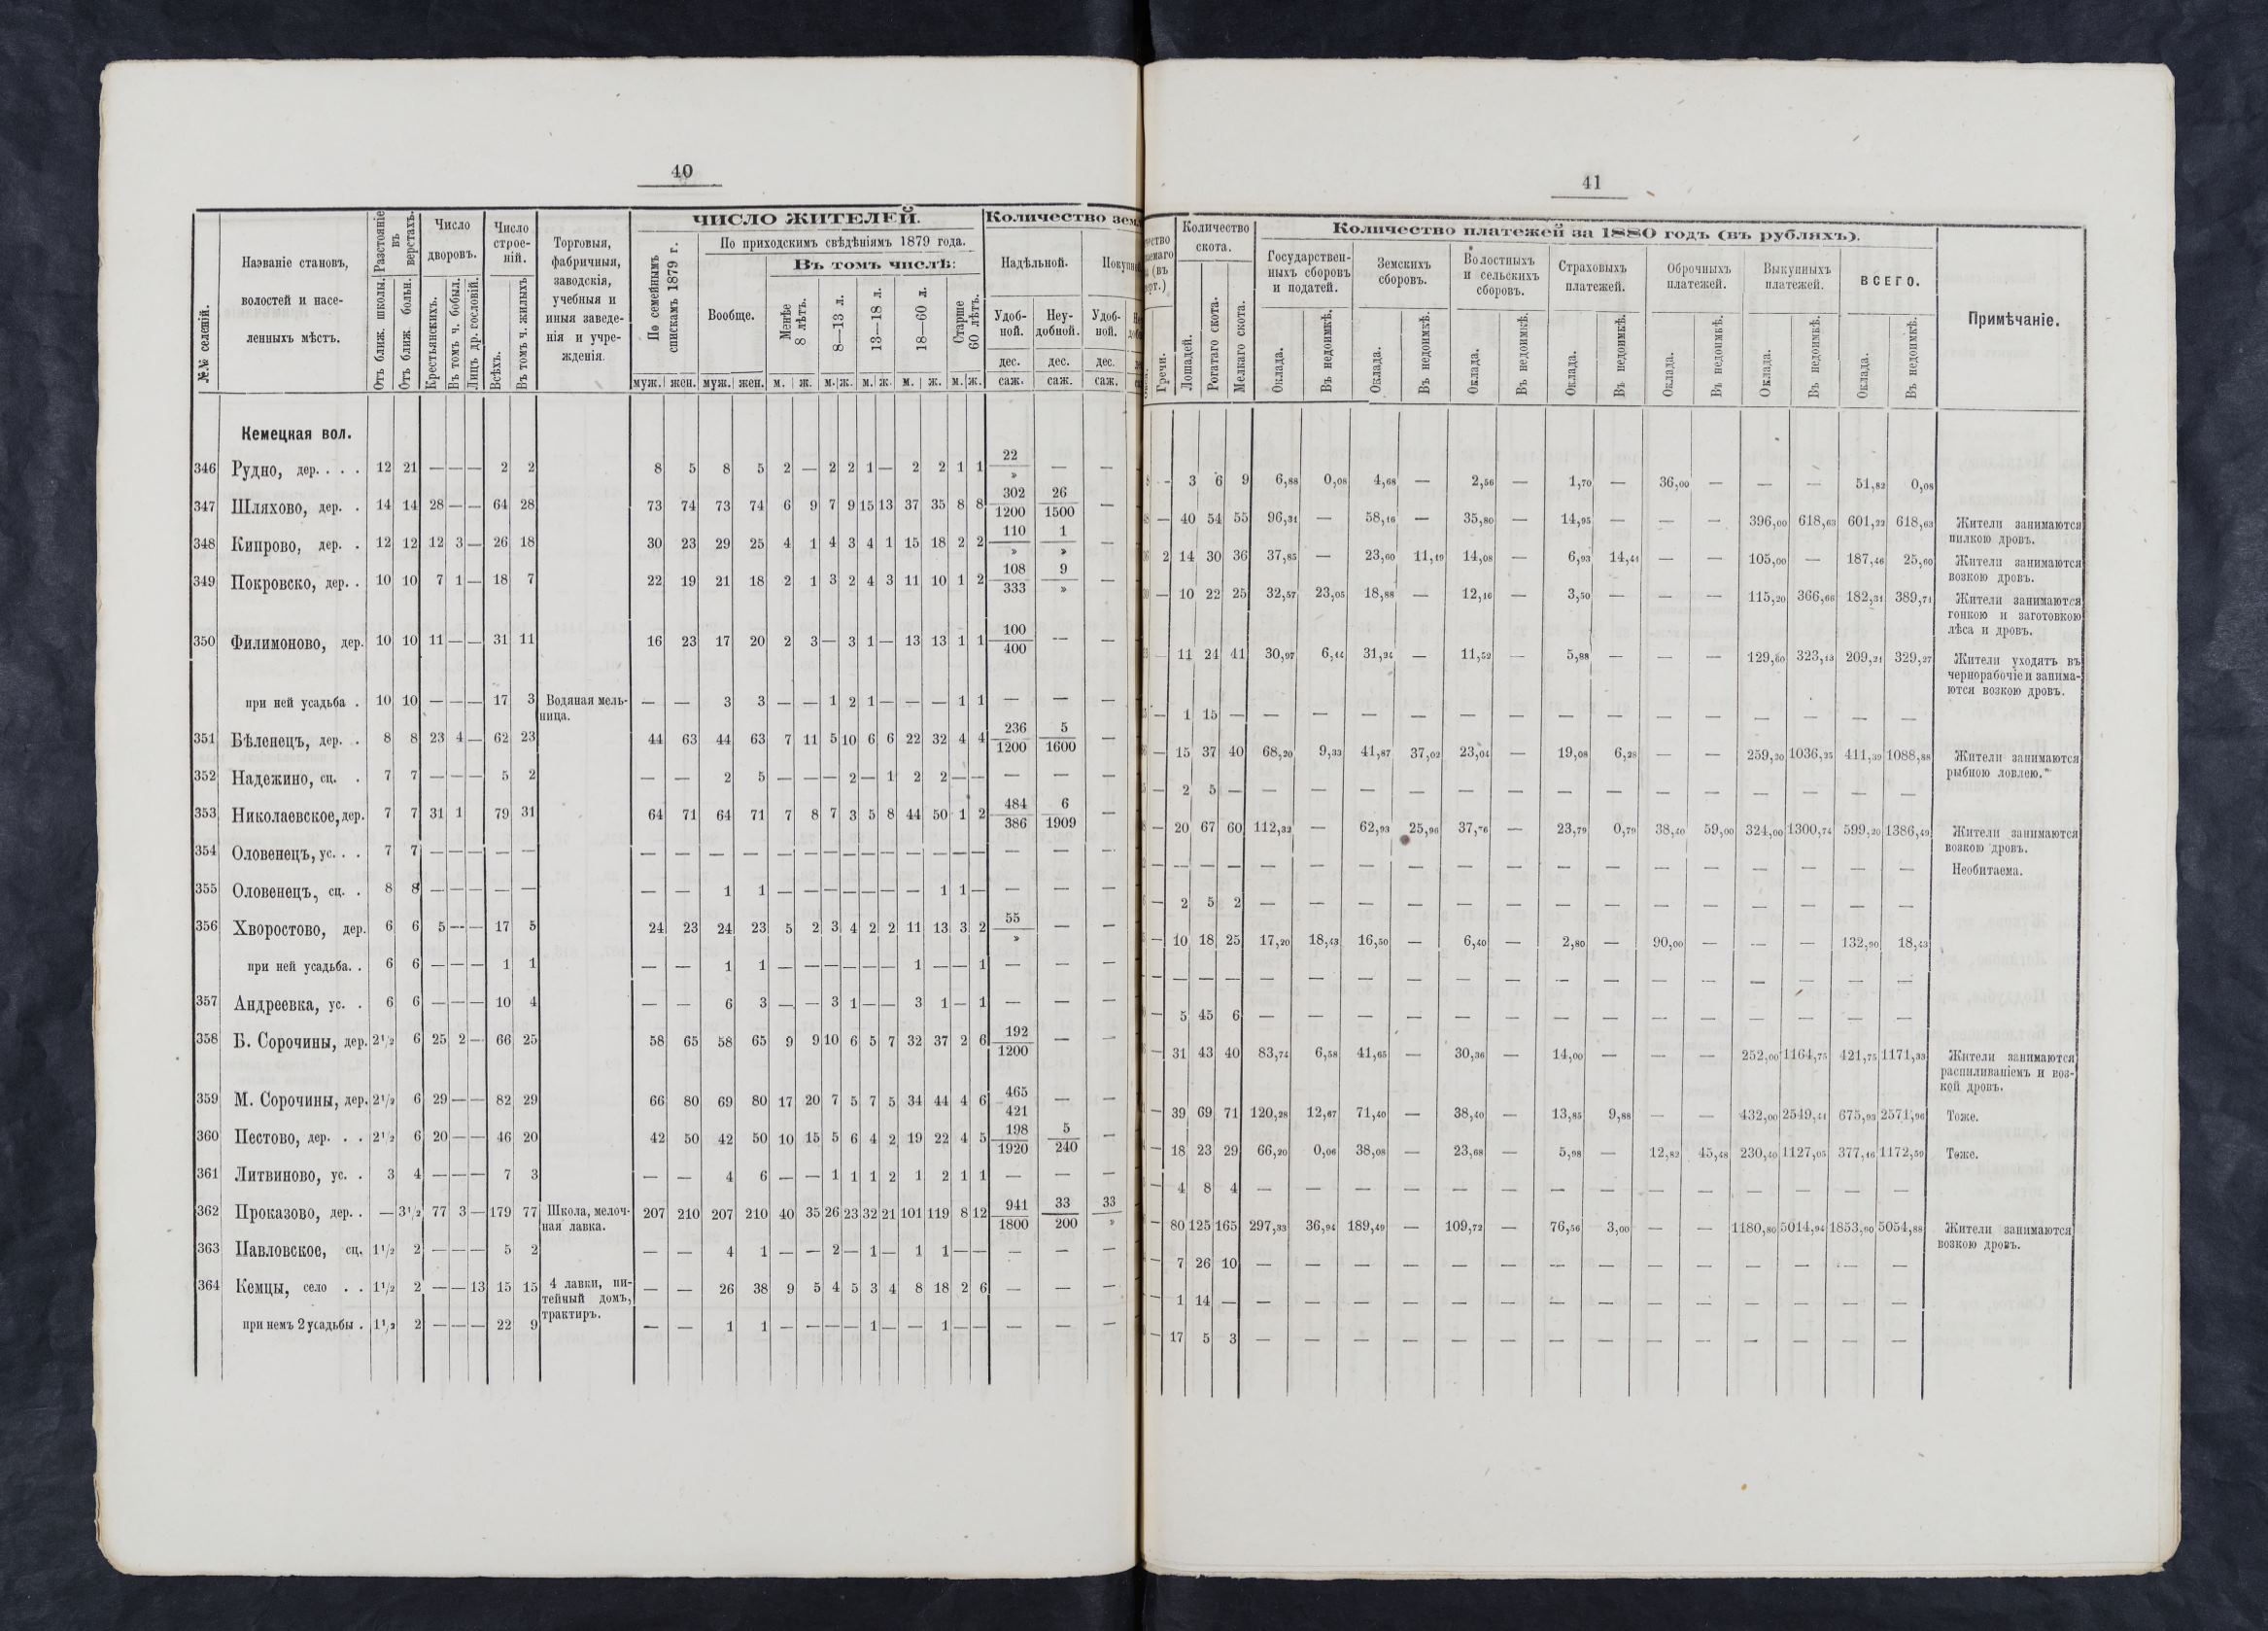 40
№№ селеній.
Названіе становъ,
волостей и насе-
ленныхъ мѣстъ.
Разстояніе въ верстахъ.
Отъ ближ. школы.
Отъ ближ. больн.
Число дворовъ.
Крестьянскихъ.
Въ томъ ч. бобыл.
Лицъ др. сословій.
Число строе-
ній.
Всѣхъ.
Въ томъ ч. жилыхъ
Торговыя,
фабричныя,
заводскія,
учебныя и
иныя заведе-
нія и учре-
жденія.
ЧИСЛО ЖИТЕЛЕЙ.
По семейнымъ спискамъ 1879 г.
По приходскимъ свѣдѣніямъ 1879 года.
Вообще.
Въ томъ числѣ:
Менѣе 8 лѣтъ.
8—13 л.
13—18 л.
18—60 л.
Старше 60 лѣтъ.
муж. жен. муж. жен. м. ж. м. ж. м. ж. м. ж. м. ж.
Количество зем
Надѣльной.
Удоб-
ной.
Неу-
добной.
Удоб-
ной.
дес. дес. дес.
саж. саж. саж.
Кемецкая вол.
346 Рудно, дер. . . . 12 21 — — — 2 2 8 5 8 5 2 — 2 2 1 — 2 2 1 1 22/» — —
347 Шляхово, дер. . 14 14 28 — — 64 28 73 74 73 74 6 9 7 9 15 13 37 35 8 8 302/1200 26/1500 —
348 Кипрово, дер. . 12 12 12 3 — 26 18 30 23 29 25 4 1 4 3 4 1 15 18 2 2 110/» 1/» —
349 Покровско, дер. . 10 10 7 1 — 18 7 22 19 21 18 2 1 3 2 4 3 11 10 1 2 108/333 9/» —
350 Филимоново, дер. 10 10 11 — — 31 11 16 23 17 20 2 3 — 3 1 — 13 13 1 1 100/400 — —
при ней усадьба . 10 10 — — — 17 3 Водяная мель-
ница. — — 3 3 — — 1 2 1 — — — 1 1 — — —
351 Бѣленецъ, дер. . 8 8 23 4 — 62 23 44 63 44 63 7 11 5 10 6 6 22 32 4 4 236/1200 5/1600 —
352 Надежино, сц. . 7 7 — — — 5 2 — — 2 5 — — — 2 — 1 2 2 — — — — —
353 Николаевское, дер. 7 7 31 1 79 31 64 71 64 71 7 8 7 3 5 8 44 50 1 2 484/386 6/1909 —
354 Оловенецъ, ус. . . 7 7 — — — — — — — — — — — — — — — — — — — — — —
355 Оловенецъ, сц. . 8 8 — — — — — — — 1 1 — — — — — — — 1 1 — — — —
356 Хворостово, дер. 6 6 5 — — 17 5 24 23 24 23 5 2 3 4 2 2 11 13 3 2 55/» — —
при ней усадьба. . 6 6 — — — 1 1 — — 1 1 — — — — — — 1 — — 1 — — —
357 Андреевка, ус. . 6 6 — — — 10 4 — — 6 3 — — 3 1 — — 3 1 — 1 — — —
358 Б. Сорочины, дер. 2½ 6 25 2 — 66 25 58 65 58 65 9 9 10 6 5 7 32 37 2 6 192/1200 — —
359 М. Сорочины, дер. 2½ 6 29 — — 82 29 66 80 69 80 17 20 7 5 7 5 34 44 4 6 465/421 — —
360 Пестово, дер. . . 2½ 6 20 — — 46 20 42 50 42 50 10 15 5 6 4 2 19 22 4 5 198/1920 5/240 —
361 Литвиново, ус. . 3 4 — — — 7 3 — — 4 6 — — 1 1 1 2 1 2 1 1 — — —
362 Проказово, дер. . — 3½ 77 3 — 179 77 Школа, мелоч-
ная лавка. 207 210 207 210 40 35 26 23 32 21 101 119 8 12 941/1800 33/200 33/»
363 Павловское, сц. 1½ 2 — — — 5 2 — — 4 1 — — 2 — 1 — 1 1 — — — — —
364 Кемцы, село . . 1½ 2 — — 13 15 15 4 лавки, пи-
тейный домъ,
трактиръ. — — 26 38 9 5 4 5 3 4 8 18 2 6 — — —
при немъ 2 усадьбы . 1½ 2 — — — 22 9 — — 1 1 — — — — 1 — — 1 — — — — —
41
Гречи.
Количество
скота.
Лошадей.
Рогатаго скота.
Мелкаго скота.
Количество платежей за 1880 годъ (въ рубляхъ).
Государствен-
ныхъ сборовъ
и податей.
Земскихъ
сборовъ.
Волостныхъ
и сельскихъ
сборовъ.
Страховыхъ
платежей.
Оброчныхъ
платежей.
Выкупныхъ
платежей.
ВСЕГО.
Оклада. Въ недоимкѣ. Оклада. Въ недоимкѣ. Оклада. Въ недоимкѣ. Оклада. Въ недоимкѣ. Оклада. Въ недоимкѣ. Оклада. Въ недоимкѣ. Оклада. Въ недоимкѣ.
Примѣчаніе.
— 3 6 9 6,88 0,08 4,68 — 2,56 — 1,70 — 36,00 — — — 51,82 0,08
— 40 54 55 96,31 — 58,16 — 35,80 — 14,95 — — — 396,00 618,63 601,22 618,63 Жители занимаются
пилкою дровъ.
2 14 30 36 37,85 — 23,60 11,19 14,08 — 6,93 14,41 — — 105,00 — 187,46 25,60 Жители занимаются
возкою дровъ.
— 10 22 25 32,57 23,05 18,88 — 12,16 — 3,50 — — — 115,20 366,66 182,31 389,71 Жители занимаются
гонкою и заготовкою
лѣса и дровъ.
— 11 24 41 30,97 6,14 31,24 — 11,52 — 5,98 — — — 129,60 323,13 209,21 329,27 Жители уходятъ въ
чернорабочіе и занима-
ются возкою дровъ.
— 1 15 — — — — — — — — — — — — — — —
— 15 37 40 68,20 9,33 41,87 37,02 23,04 — 19,08 6,28 — — 259,20 1036,25 411,39 1088,88 Жители занимаются
рыбною ловлею.
— 2 5 — — — — — — — — — — — — — — —
— 20 67 60 112,32 — 62,93 25,96 37,76 — 23,79 0,79 38,40 59,00 324,00 1300,74 599,20 1386,49 Жители занимаются
возкою дровъ.
— — — — — — — — — — — — — — — — — — Необитаема.
— 2 5 2 — — — — — — — — — — — — — —
— 10 18 25 17,20 18,43 16,50 — 6,40 — 2,80 — 90,00 — — — 132,90 18,43
— — — — — — — — — — — — — — — — — —
— 5 45 6 — — — — — — — — — — — — — —
— 31 43 40 83,74 6,58 41,65 — 30,36 — 14,00 — — — 252,00 1164,75 421,75 1171,33 Жители занимаются
распиливаніемъ и воз-
кой дровъ.
— 39 69 71 120,28 12,67 71,40 — 38,40 — 13,85 9,88 — — 432,00 2549,41 675,93 2571,96 Тоже.
— 18 23 29 66,20 0,06 38,08 — 23,68 — 5,98 — 12,82 45,48 230,40 1127,05 377,16 1172,59 Тоже.
— 4 8 4 — — — — — — — — — — — — — —
— 80 125 165 297,33 36,94 189,49 — 109,72 — 76,56 3,00 — — 1180,80 5014,94 1853,90 5054,88 Жители занимаются
возкою дровъ.
— 7 26 10 — — — — — — — — — — — — — —
— 1 14 — — — — — — — — — — — — — — —
— 17 5 3 — — — — — — — — — — — — — —